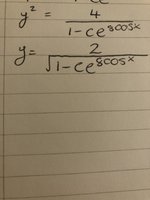 y² = 4 / (1-ce^(8cosx))
y = 2 / √(1-ce^(8cosx))